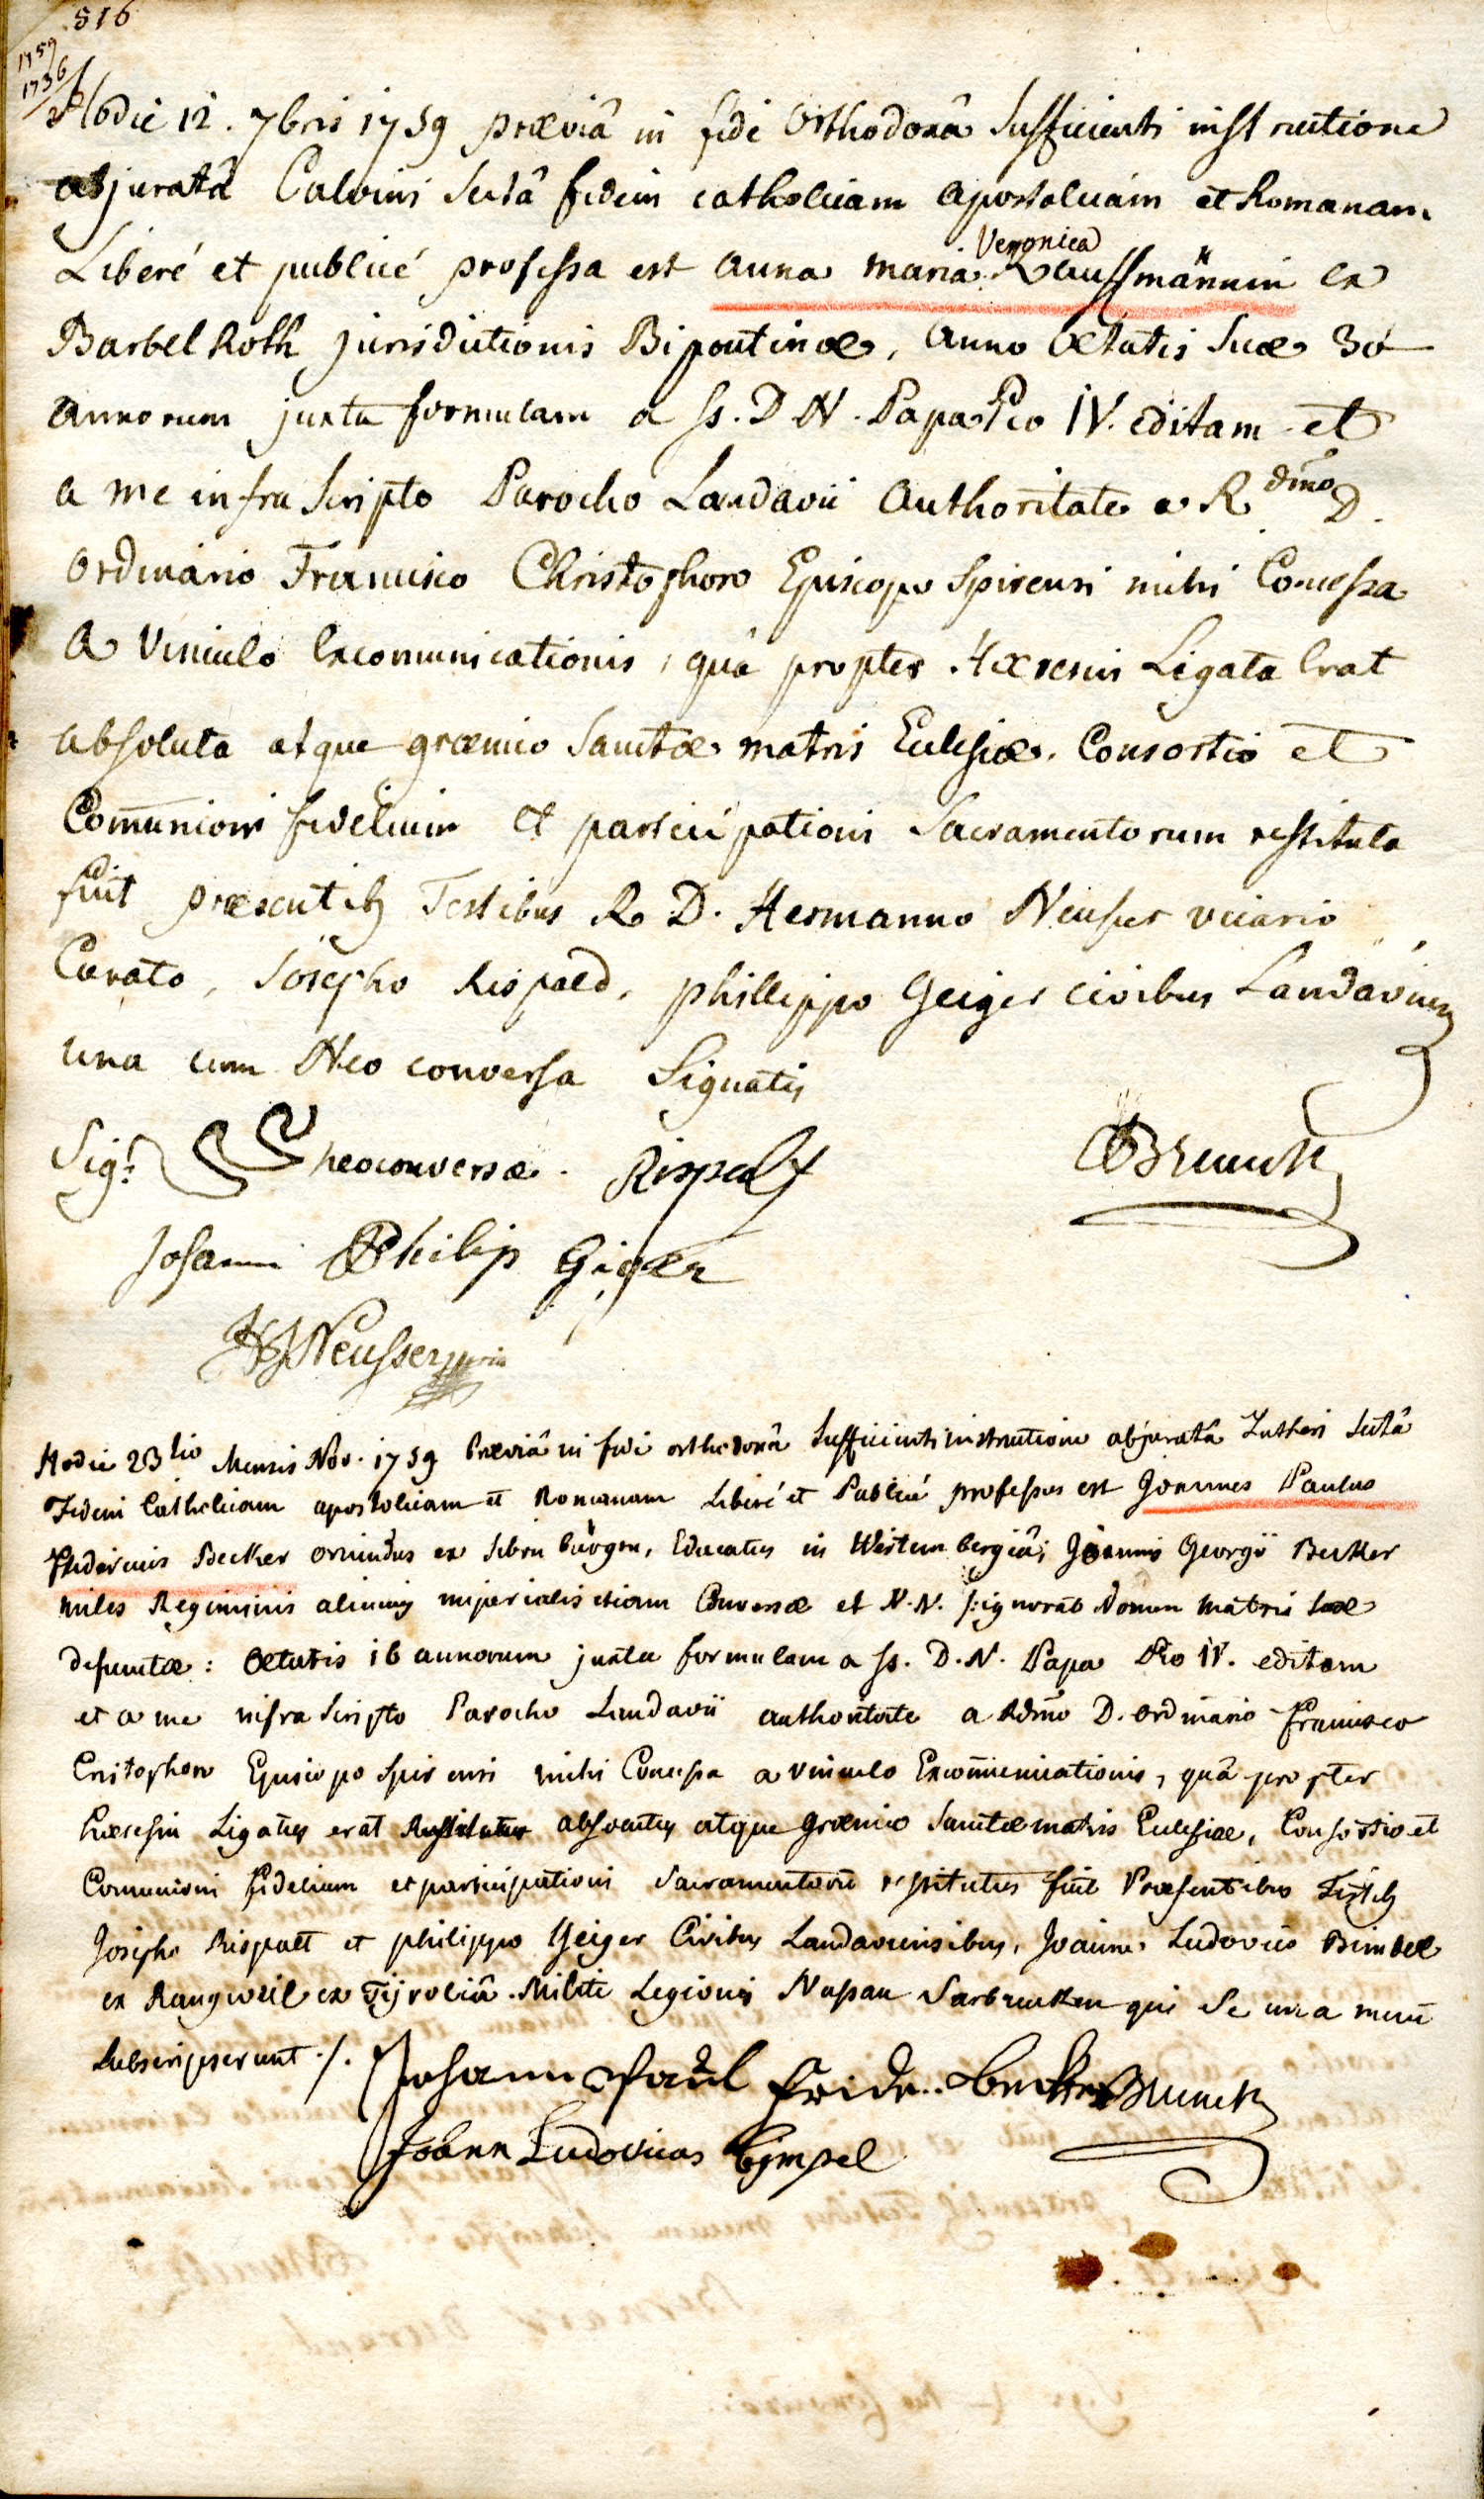 516
1759
1736
Hodie 12. 7bris 1759 præviâ in fide Orthodoxâ sufficienti instructione
abjuratâ Calvini sectâ fidem catholicam apostolicam et Romanam
Liberé et publicé professa est anna maria Veronica Kauffmännin ex
Barbelroth jurisdictionis Bipontinæ, anno ætatis suæ 30
annorum juxta formulam a ss. D N. Papa Pio IV. editam et
a me infra scripto Parocho Landavii authoritate a R.dmo D.
ordinario Francisco Christophoro Episcopo Spirensi mihi Concessa
a Vinculo Excomunicationis, quâ propter Hæresin Ligata Erat
absoluta atque græmio Sanctæ matris Ecclesiæ, Consortio et
Com̄unioni fidelium et participationi Sacramentorum restituta
fuit præsentib Testibus R D. Hermanno Neusser vicario
Curato, Josepho Rispald, phillippo Geiger civibus Landaviens
una cum Neo conversa Signatis
Sig: neoconversæ. Rispalt CBrunck
Johanni Philip Giger
HJ Neusser
Hodie 23tio Mensis Nov. 1759 Præviâ in fide orthodoxâ sufficienti instructione abjuratâ Lutheri sectâ
Fidem Catholicam apostolicam et Romanam Liberé et Publicé professus est Joannes Paulus
Fridericus Becker oriundus ex Büögen, Educatus in Wirtembergiâ; Joannis Georgÿ Becker
miles Regiminis imperialis etiam Conversæ et N.N. /:ignorat Nomen Matris suæ
defunctæ: ætatis 16 annorum juxta formulam a ss. D. N. Papa Pio IV. editam
et a me infra scripto Parocho Landavii authoritate a Rdmo D. ordinario Francisco
Cristophoro Episcopo Spirensi mihi Concessa a vinculo Excom̄unicationis, quâ propter
hæresin Ligatus erat Restitutus absolutus atque græmio Sanctæ matris Ecclesiæ, Consortio et
Comunioni fidelium et participationi Sacramentorū restitutus fuit Præsentibus Testib
Josepho Rispalt et philippo Geiger Civibus Landaviensibus, Joanne Ludovico Bimbel
ex Rangweil ex Tÿroliâ Milite Legionis Nassau Sarbrucken qui se una mecū
subscripserunt ./. Johann Paul Fride.. Becker Brunck
Johann Ludovicus Bimpel